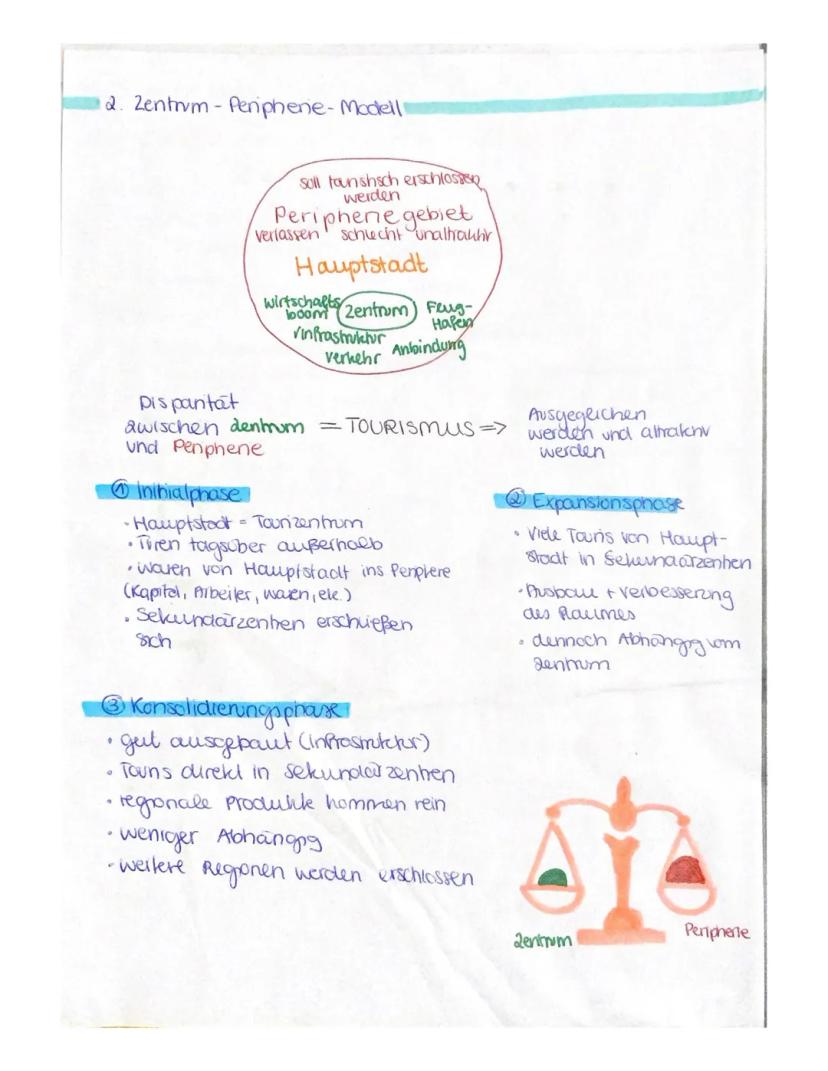 2. Zentrum - Peripherie - Modell
soll touristisch erschlossen
werden
Peripheriegebiet
verlassen schlecht unattraktiv
Hauptstadt
wirtschafts
boom
Zentrum
Flug-
Hafen
Infrastruktur
verkehr Anbindung
Disparität
zwischen Zentrum = TOURISMUS =>
und Peripherie
Ausgeglichen
werden und attraktiv
werden
① Initialphase
• Hauptstadt = Tourizentrum
• Türen tagsüber außerhalb
• Waren von Hauptstadt ins Periphere
(Kapital, Arbeiter, waren, etc.)
• Sekundärzentren erschießen
sich
② Expansionsphase
• Viele Touris von Haupt-
Stadt in Sekundärzentren
• Ausbau + Verbesserung
des Raumes
• dennoch Abhängig vom
Zentrum
③ Konsolidierungsphase
• gut ausgebaut (Infrastruktur)
• Touris direkt in Sekundärzentren
• regionale Produkte kommen rein
• weniger Abhängig
• weitere Regionen werden erschlossen
Zentrum
Peripherie